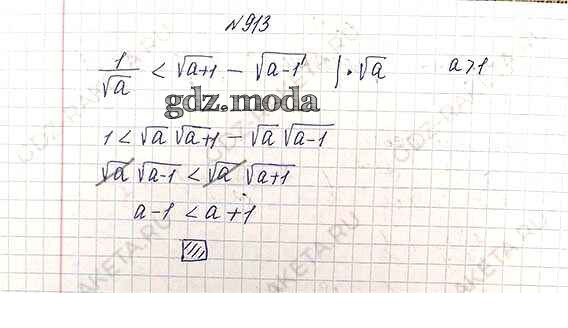 №913
1/√a < √a+1 − √a-1 | · √a a>1
gdz.moda
1 < √a √a+1 − √a √a-1
√a √a-1 < √a √a+1
a-1 < a+1
GDZ-RAKETA.RU